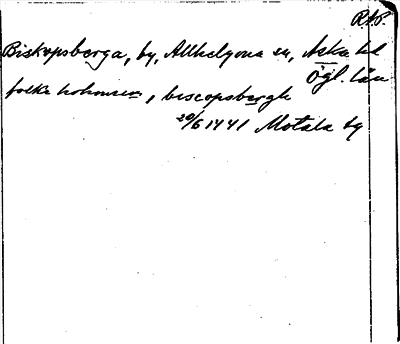 R.A.P.
Biskopsberga, by, Allhelgona sn, Aska hd
Ögl. län
folke hohonsen, biscopsbergh
20/6 1441 Motala by